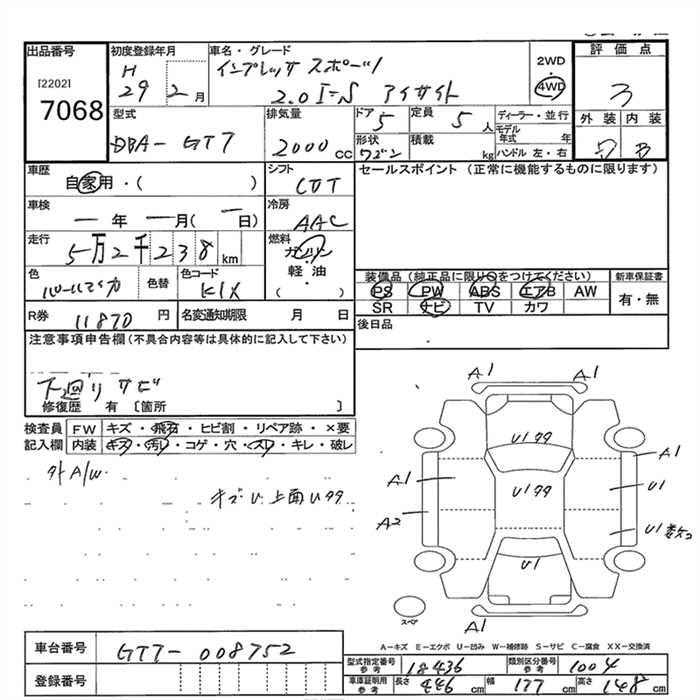 出品番号
[2202]
7068
初度登録年月
H
29 2月
車名・グレード
インプレッサ スポーツ
2.0I-S アイサイト
2WD
4WD
評価点
3
外装 内装
B
型式
DBA-GT7
排気量
2000cc
ドア
5
定員
5人
形状
ワゴン
積載
kg
ディーラー・並行
モデル
年式 年
ハンドル 左・右
車歴
自家用・( )
シフト
CVT
セールスポイント (正常に機能するものに限ります)
車検
―年―月(―日)
冷房
AAC
走行
5万2千238km
燃料
ガソリン
軽・油
( )
色
パールマイカ
色替
色コード
K1X
装備品(純正品に限り○をつけてください)
PS PW ABS エアB AW
SR ナビ TV カワ
新車保証書
有・無
R券
11870円
名変通知期限 月 日
後日品
注意事項申告欄(不具合内容等は具体的に記入して下さい)
下廻りサビ
修復歴 有 〔箇所 〕
検査員
記入欄
FW キズ・飛石・ヒビ割・リペア跡・×要
内装 キズ・汚れ・コゲ・穴・スレ・キレ・破レ
外A/W
キズU 上面U99
A1 A1
U199
A1
A1
U199
U1
A2
U1数コ
U1
スペア
A1
A-キズ E-エクボ U-凹み W-補修跡 S-サビ C-腐食 XX-交換済
車台番号
GT7-008752
登録番号
型式指定番号
参考
18436
類別区分番号
参考
1004
車庫証明用
参考
長さ 446cm
幅 177cm
高さ 148cm